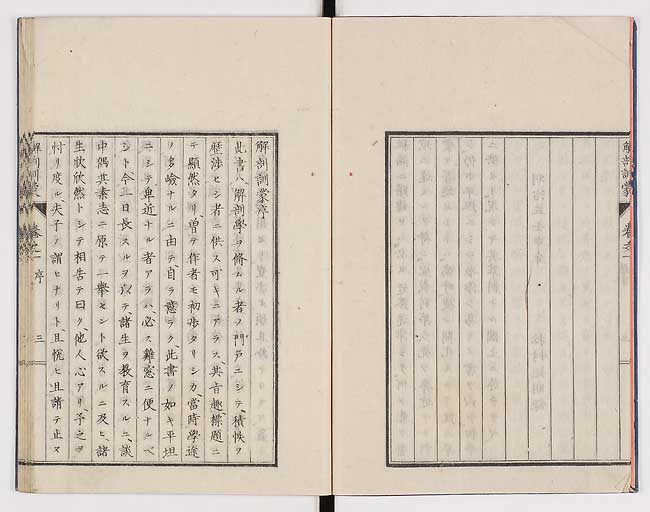 解剖訓蒙序
此書ハ、解剖學ヲ脩ムル者ノ門戸ニシテ、積帙ヲ
歴渉セシ者ニ供ス可キニアラス、其旨趣、標題ニ
テ顯然タリ、曽テ作者モ初歩タリシカ、當時學途
ノ多嶮ナルニ由テ、自ラ意ラク此書ノ如キ平坦
ニシテ、卑近ナル者アラハ、必ス雞窓ニ便ナルベ
シト、今一日長スルヲ以テ、諸生ヲ教育スルニ、談
中偶其素志ニ原テ一舉セント欲スルニ及ヒ、諸
生欣欣然トシテ相告テ曰ク、他人心アリ、予之ヲ
忖リ度ル夫子ノ謂ヒナリト、且忱ヒ且請テ止マ
解剖訓蒙
卷之一
序
三
解剖訓蒙
卷之一